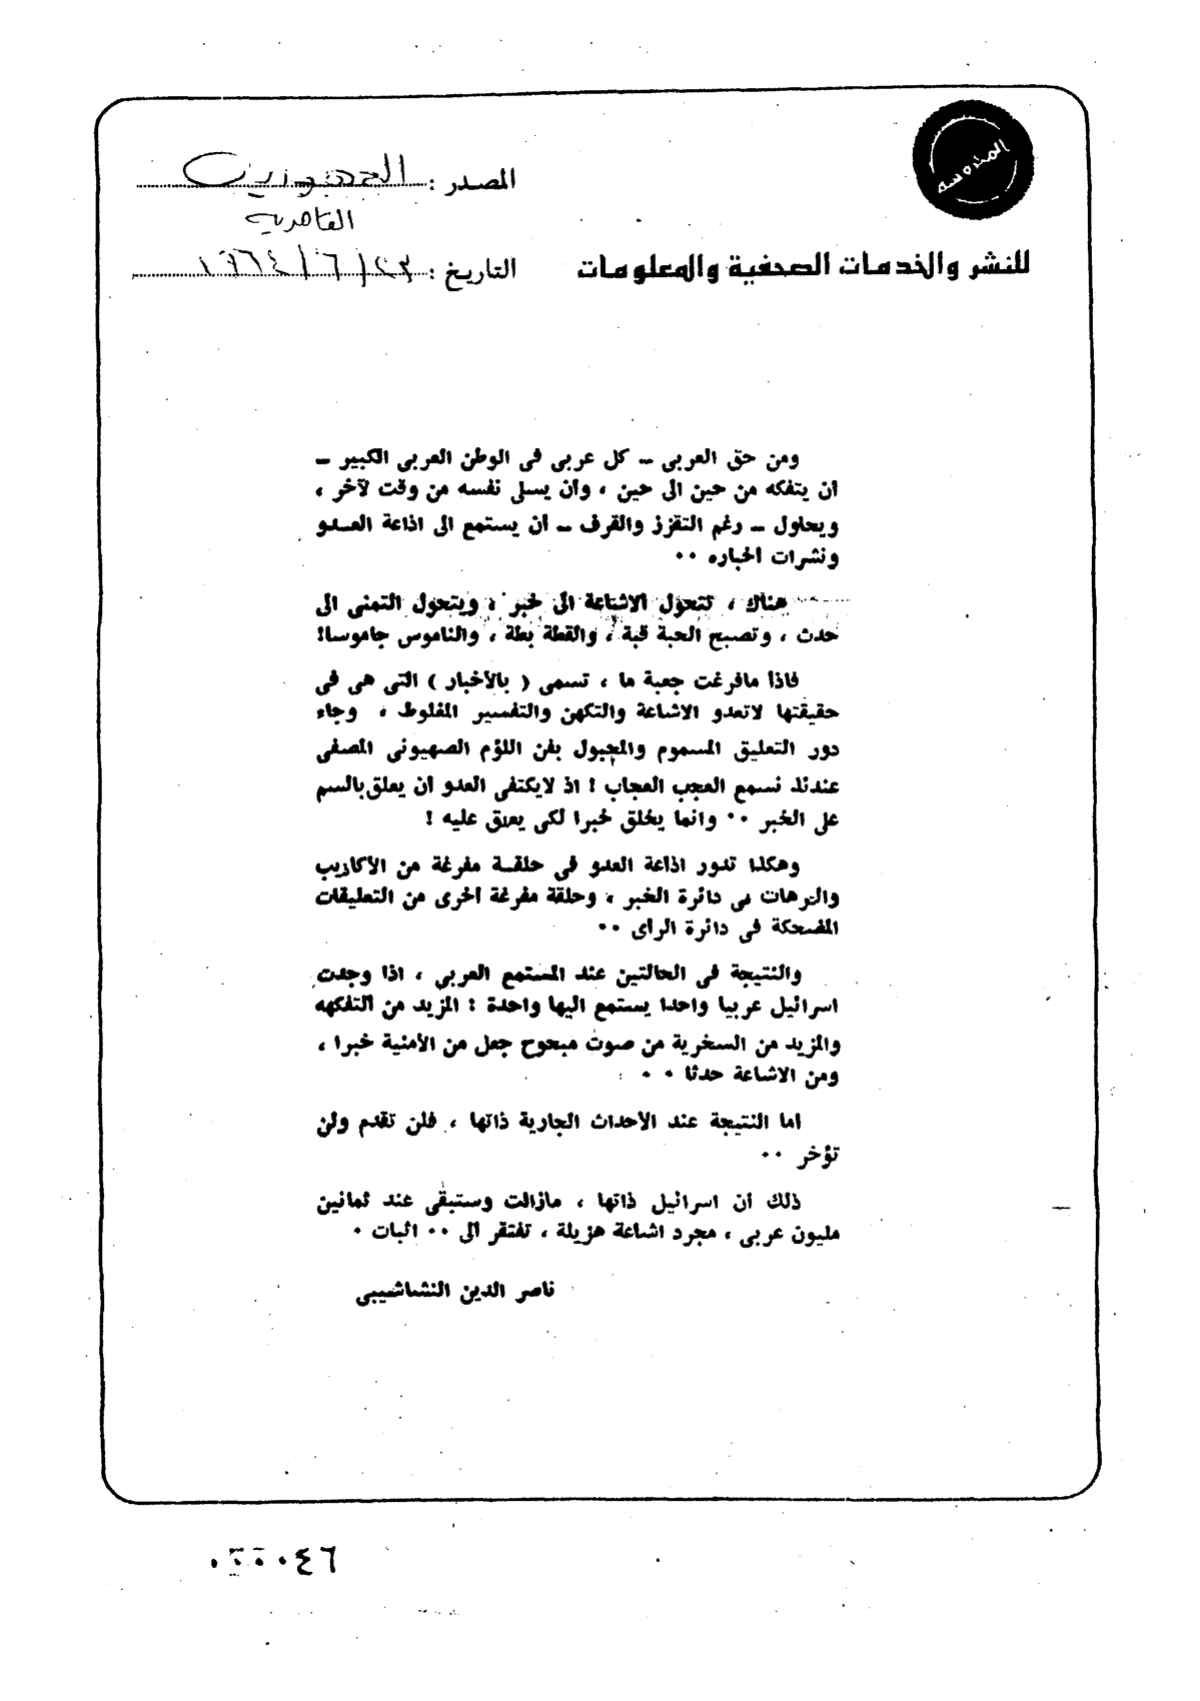 المصدر : الجمهورية
القاهرية
للنشر والخدمات الصحفية والمعلومات
التاريخ : ٢٣ / ٦ / ١٩٦٤
ومن حق العربى ــ كل عربى فى الوطن العربى الكبير ــ
أن يتفكه من حين الى حين ، وأن يسلى نفسه من وقت لآخر ،
ويحاول ــ رغم التقزز والقرف ــ أن يستمع الى اذاعة العـدو
ونشرات اخباره ٠٠
هناك ، تتحول الاشاعة الى خبر ، ويتحول التمنى الى
حدث ، وتصبح الحبة قبة ، والقطة بطة ، والناموس جاموسا!
فاذا مافرغت جعبة ما ، تسمى ( بالأخبار ) التى هى فى
حقيقتها لاتعدو الاشاعة والتكهن والتفسير المغلوط ، وجاء
دور التعليق المسموم والمجبول بفن اللؤم الصهيونى المصفى
عندئذ نسمع العجب العجاب ! اذ لايكتفى العدو ان يعلق بالسم
على الخبر ٠٠ وانما يخلق خبرا لكى يعلق عليه !
وهكذا تدور اذاعة العدو فى حلقـة مفرغة من الأكاذيب
والترهات فى دائرة الخبر ، وحلقة مفرغة اخرى من التعليقات
المضحكة فى دائرة الراى ٠٠
والنتيجة فى الحالتين عند المستمع العربى ، اذا وجدت
اسرائيل عربيا واحدا يستمع اليها واحدة : المزيد من التفكهه
والمزيد من السخرية من صوت مبحوح جعل من الأمنية خبرا ،
ومن الاشاعة حدثا ٠ ٠
اما النتيجة عند الأحداث الجارية ذاتها ، فلن تقدم ولن
تؤخر ٠٠
ذلك أن اسرائيل ذاتها ، مازالت وستبقى عند ثمانين
مليون عربى ، مجرد اشاعة هزيلة ، تفتقر الى ٠٠ اثبات ٠
ناصر الدين النشاشيبى